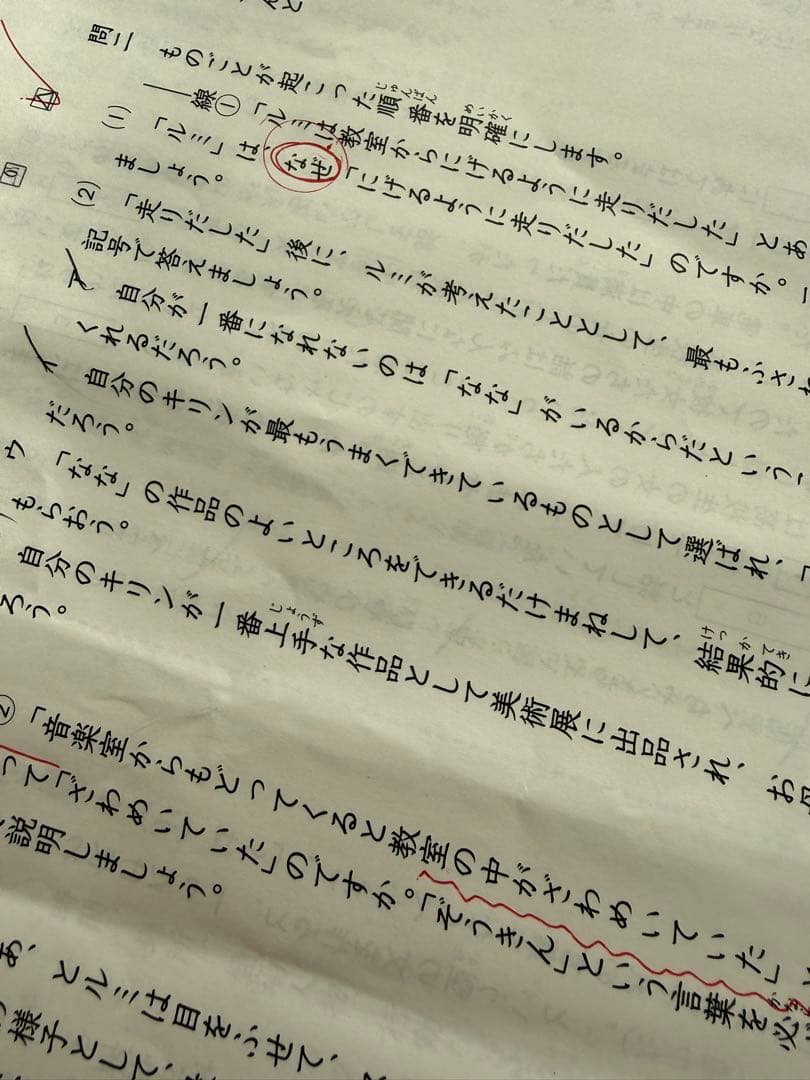 ものごとが起こった順番を明確にします。
じゅんばん
めいかく
問二
線①「ルミは教室からにげるように走りだした」とあ
(1) 「ルミ」は、なぜ「にげるように走りだした」のですか。一
ましょう。
(2) 「走りだした」後に、ルミが考えたこととして、最もふさわ
記号で答えましょう。
ア 自分が一番になれないのは「なな」がいるからだというこ
くれるだろう。
イ 自分のキリンが最もうまくできているものとして選ばれ、
だろう。
ウ 「なな」の作品のよいところをできるだけまねして、結果的に
けっかてき
もらおう。
自分のキリンが一番上手な作品として美術展に出品され、お
じょうず
ろう。
② 「音楽室からもどってくると教室の中がざわめいていた」
って「ざわめいていた」のですか。「ぞうきん」という言葉を必
説明しましょう。
あ、とルミは目をふせて、
様子として、